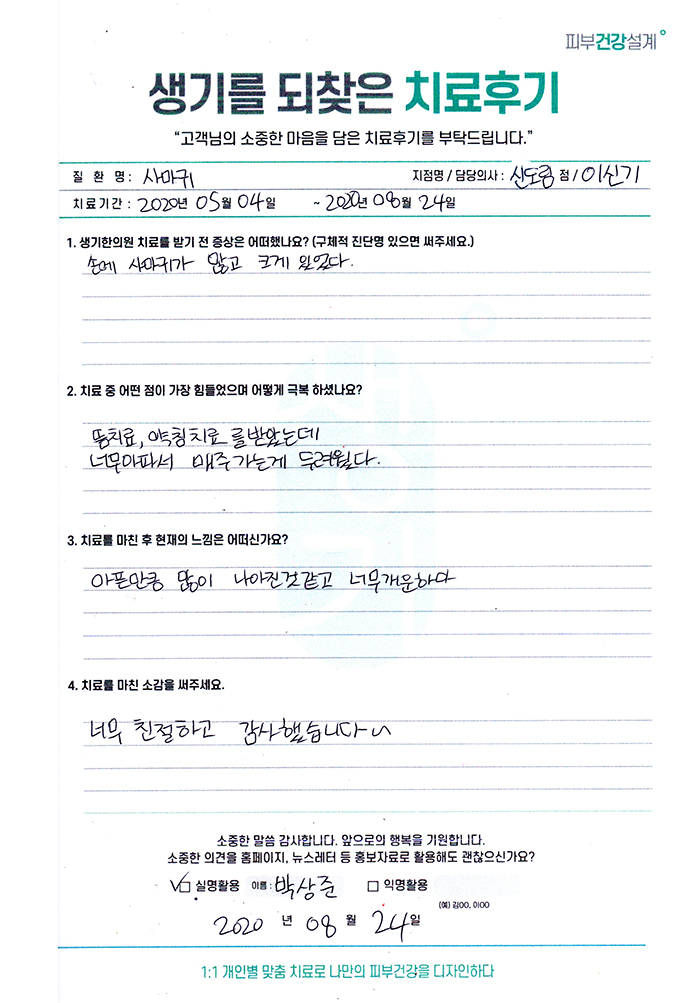 피부건강설계
생기를 되찾은 치료후기
“고객님의 소중한 마음을 담은 치료후기를 부탁드립니다.”
질 환 명 : 사마귀 지점명 / 담당의사 : 신도림 점 / 이신기
치료기간 : 2020년 05월 04일 ~ 2020년 08월 24일
1. 생기한의원 치료를 받기 전 증상은 어떠했나요? (구체적 진단명 있으면 써주세요.)
손에 사마귀가 많고 크게 있었다.
2. 치료 중 어떤 점이 가장 힘들었으며 어떻게 극복 하셨나요?
뜸치료, 약침치료를받았는데
너무아파서 매주가는게 두려웠다.
3. 치료를 마친 후 현재의 느낌은 어떠신가요?
아픈만큼 많이 나아진것같고 너무개운하다
4. 치료를 마친 소감을 써주세요.
너무 친절하고 감사했습니다~
소중한 말씀 감사합니다. 앞으로의 행복을 기원합니다.
소중한 의견을 홈페이지, 뉴스레터 등 홍보자료로 활용해도 괜찮으신가요?
실명활용 이름 : 박상준 익명활용
(예) 김OO, 이OO
2020 년 08 월 24일
1:1 개인별 맞춤 치료로 나만의 피부건강을 디자인하다